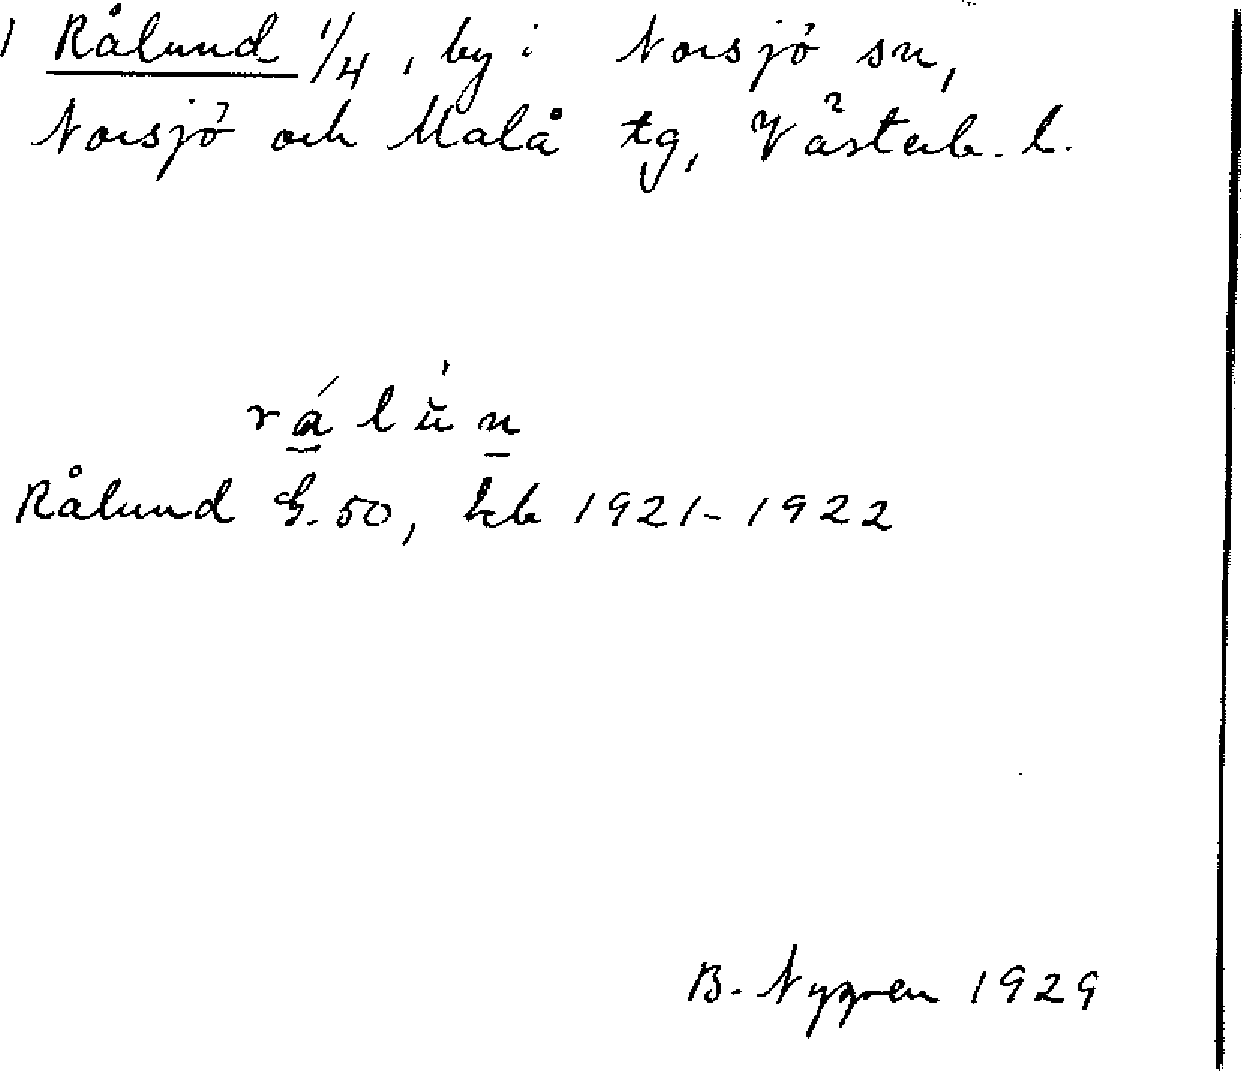 Rålund 1/4, by i Norsjö sn,
Norsjö och Malå tg, Västerb. l.
rálŭn
Rålund G. 50, kb 1921-1922
B. Nygren 1929